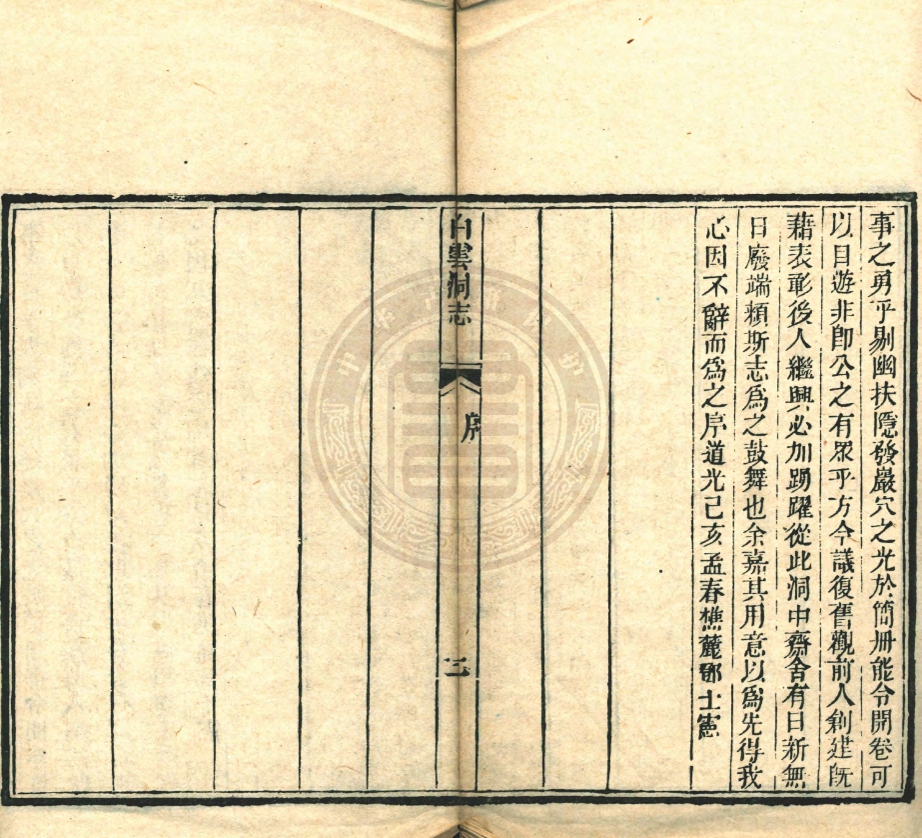 事之勇乎剔幽扶隱發巖穴之光於簡册能令開卷可
以目遊非卽公之有眾乎方今議復舊觀前人創建旣
藉表彰後人繼興必加踴躍從此洞中齋舍有日新無
日廢端賴斯志爲之鼓舞也余嘉其用意以爲先得我
心因不辭而爲之序道光己亥孟春樵麓鄧士憲
白雲洞志
序
三